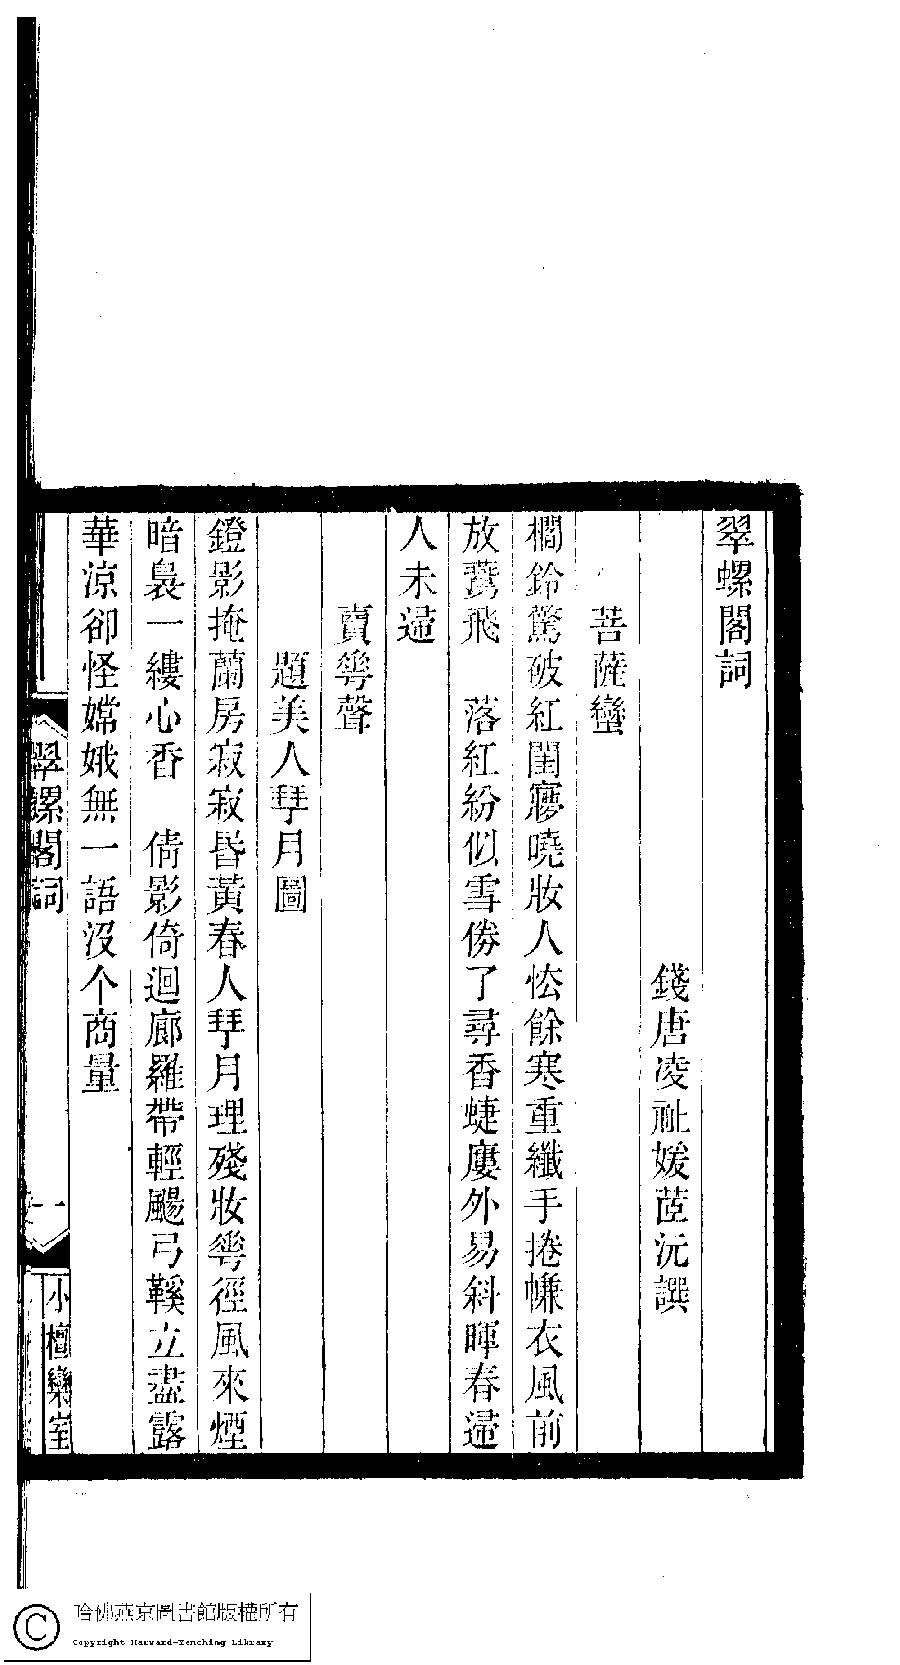 翠螺閣詞
錢唐凌祉媛茝沅譔
菩薩蠻
櫚鈴驚破紅閨㝱曉妝人怯餘寒重纖手捲㡘衣風前
放鷰飛　落紅紛似雪僝了尋香蜨廔外易斜暉春歸
人未歸
賣蕚聲
題美人琴月圖
鐙影掩蘭房寂寂昏黃春人琴月理殘妝蕚徑風來煙
暗裊一縷心香　倩影倚迴廊羅帶輕颺弓鞵立盡露
華涼卻怪嫦娥無一語沒个商量
翠螺閣詞
一
小檀欒室
哈佛燕京圖書館版權所有
Copyright Harvard-Yenching Library